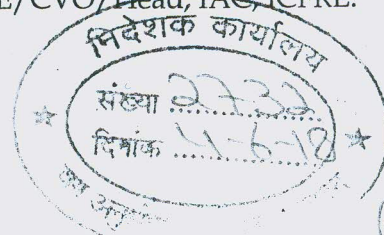 E/CVO/Head, IAC, ICFRE.
निदेशक कार्यालय
संख्या 2732
दिनांक 4-6-18
वन